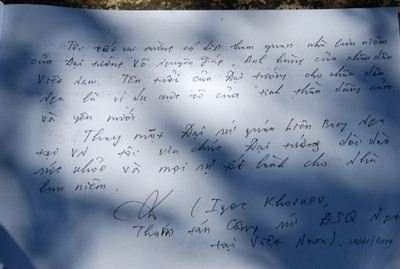 Tôi rất vui mừng có dịp tham quan nhà lưu niệm
của Đại tướng Võ Nguyên Giáp, Anh hùng của nhân dân
Việt Nam. Tên tuổi của Đại tướng cho nhân dân
Nga là ví dụ rực rỡ của tinh thần dũng cảm
và yêu nước.
Thay mặt Đại sứ quán Liên Bang Nga
tại VN tôi xin chúc Đại tướng dồi dào
sức khỏe và mọi sự tốt lành cho Nhà
lưu niệm.
(Igor Khovaev,
Tham tán Công sứ ĐSQ Nga
tại Việt Nam).